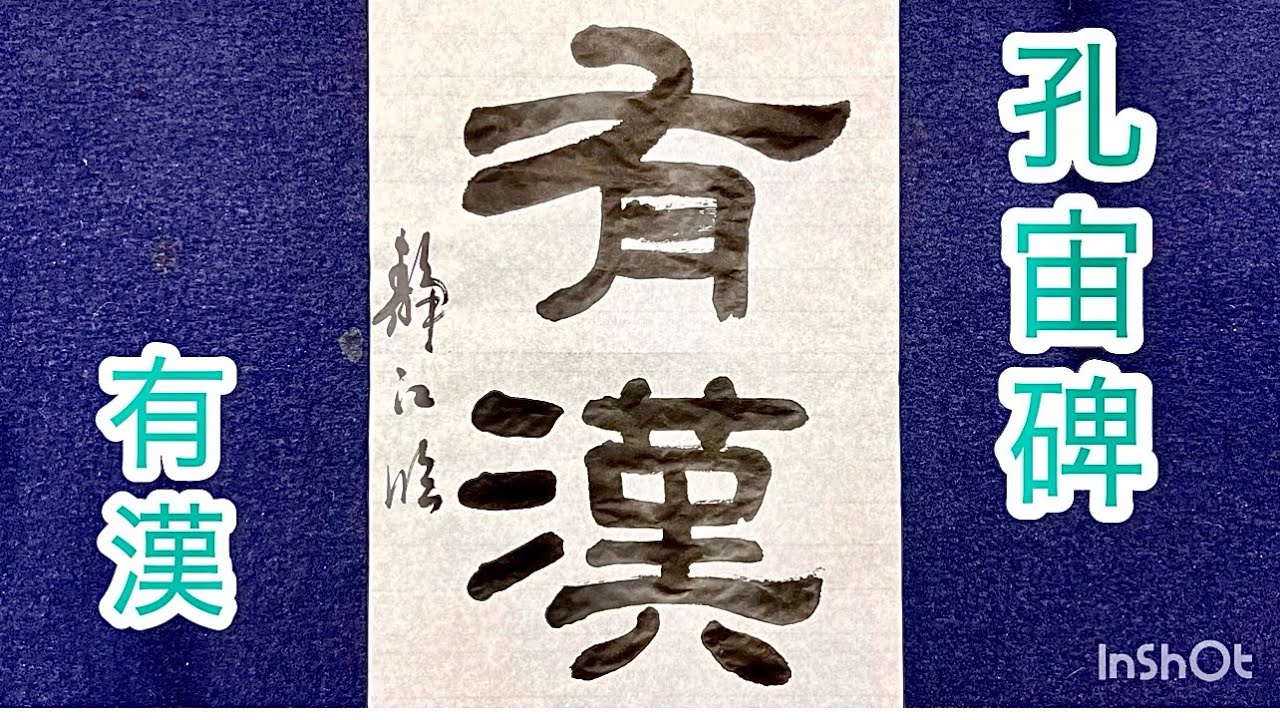 孔宙碑
有漢
靜江臨
有漢
InShOt